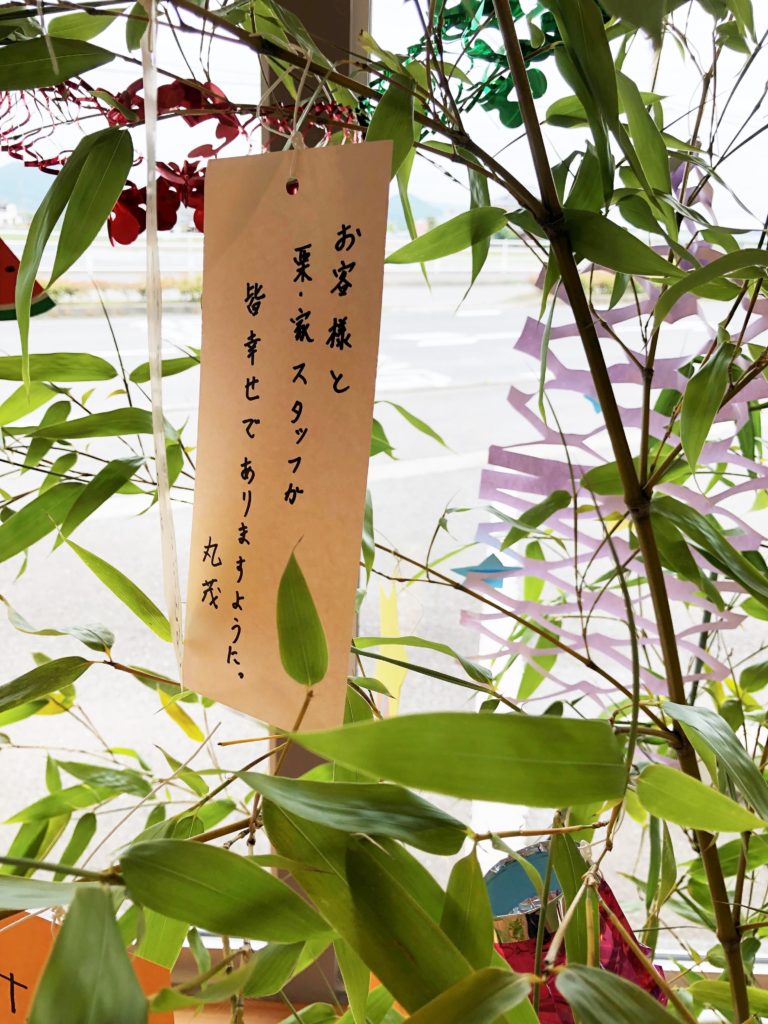 お客様と
栗・家スタッフが
皆幸せでありますように。
丸茂